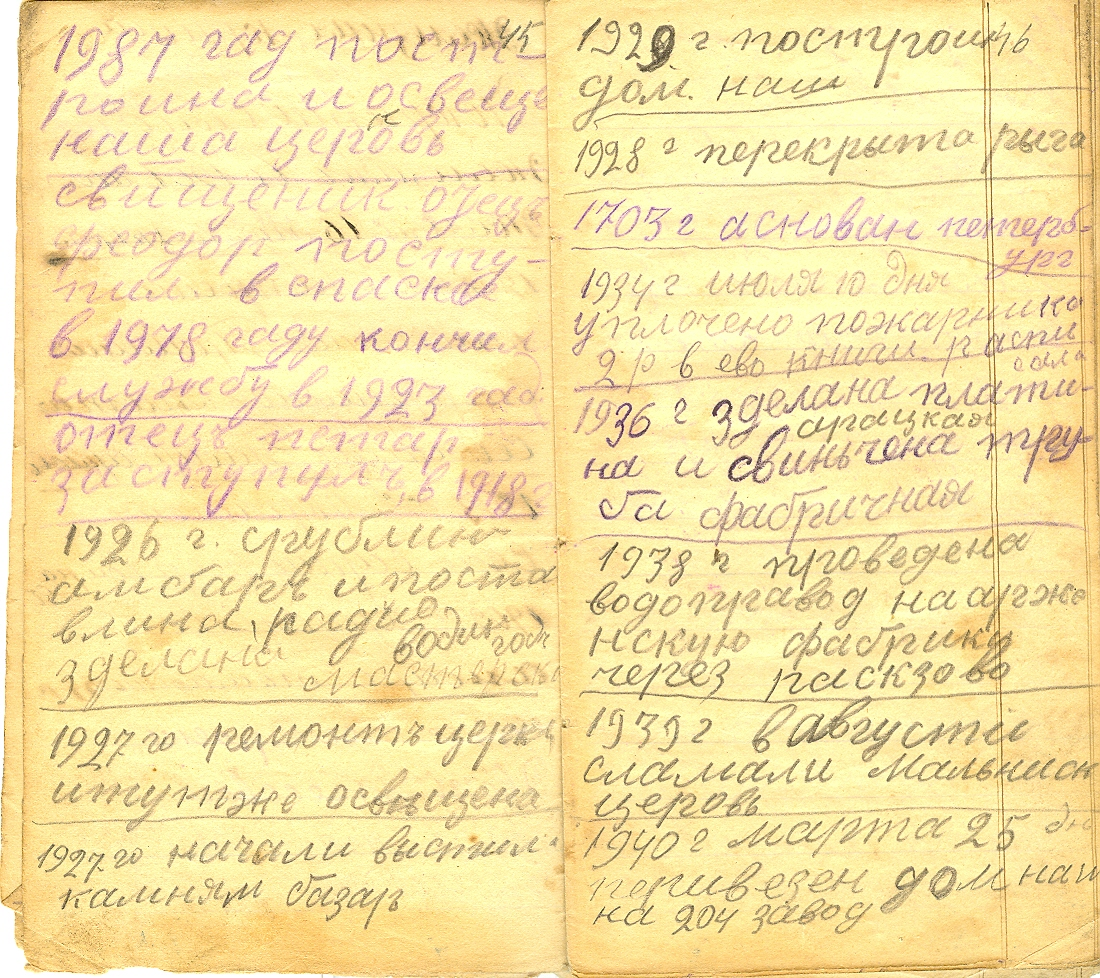 45
1987 гад пост
роина и освеще
наша церковь
свищеник отецъ
феодор посту-
пил в спаское
в 1978 гаду кончил
службу в 1923 гад
отецъ петар
заступулъ в 1918 г
1926 г. срублин
амбаръ и поста
влина радио
зделана водин годъ
мастерска
1927 го ремонтъ церкв
итутже освещена
1927 го начали выстил
камням базар
46
1929 г. построин
дом. наш
1928 г перекрыта рыга
1703 г аснован петерб-
ург
1934 г июля 10 дня
уплочено пожарнико
2 р в ево книги распи
сала
1936 г зделана плати-
арацкая
на и свиньчена тру-
ба фабричная
1938 г проведена
водоправод на аржэ
нскую фабрику
через раскзово
1939 г в августи
сламали мальниск
церовь
1940 г марта 25 дн
перивезен дом наш
на 204 завод